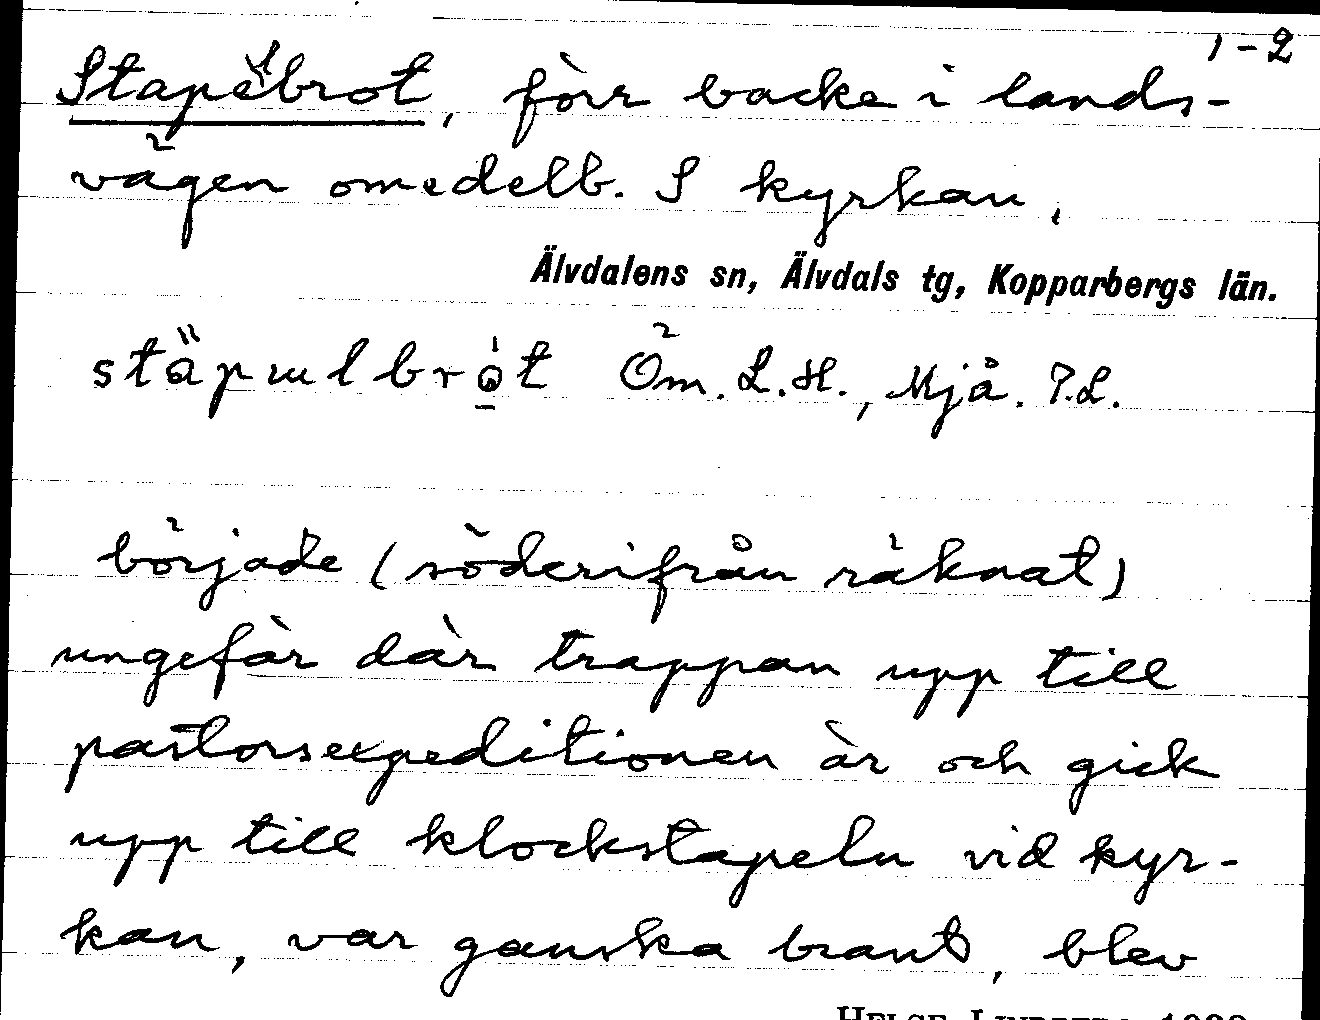 1-2
Stapelbrot, förr backe i lands-
vägen omedelb. S kyrkan,
Älvdalens sn, Älvdals tg, Kopparbergs län.
stäpɯlbrọ̀t Öm. L.H., Mjå. P.L.
började (söderifrån räknat)
ungefär där trappan upp till
pastorsexpeditionen är och gick
upp till klockstapeln vid kyr-
kan, var ganska brant, blev